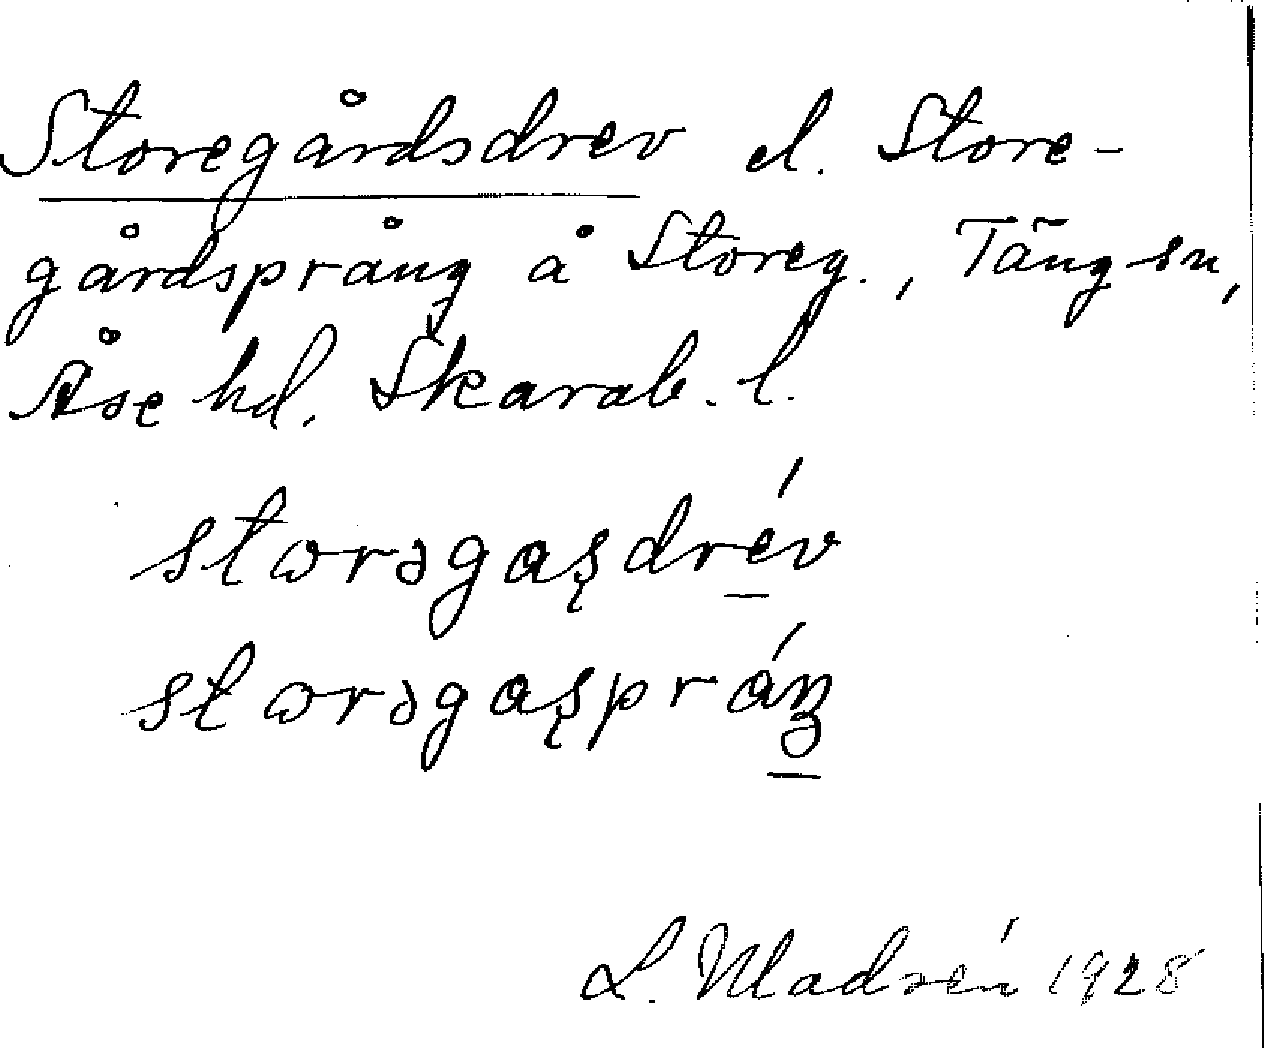 Storegårdsdrev el. Store-
gårdsprång å Storeg., Täng sn,
Åse hd. Skarab. l.
stωrəgaʂdrév
stωrəgaʂpráŋ
L. Modrén 1928